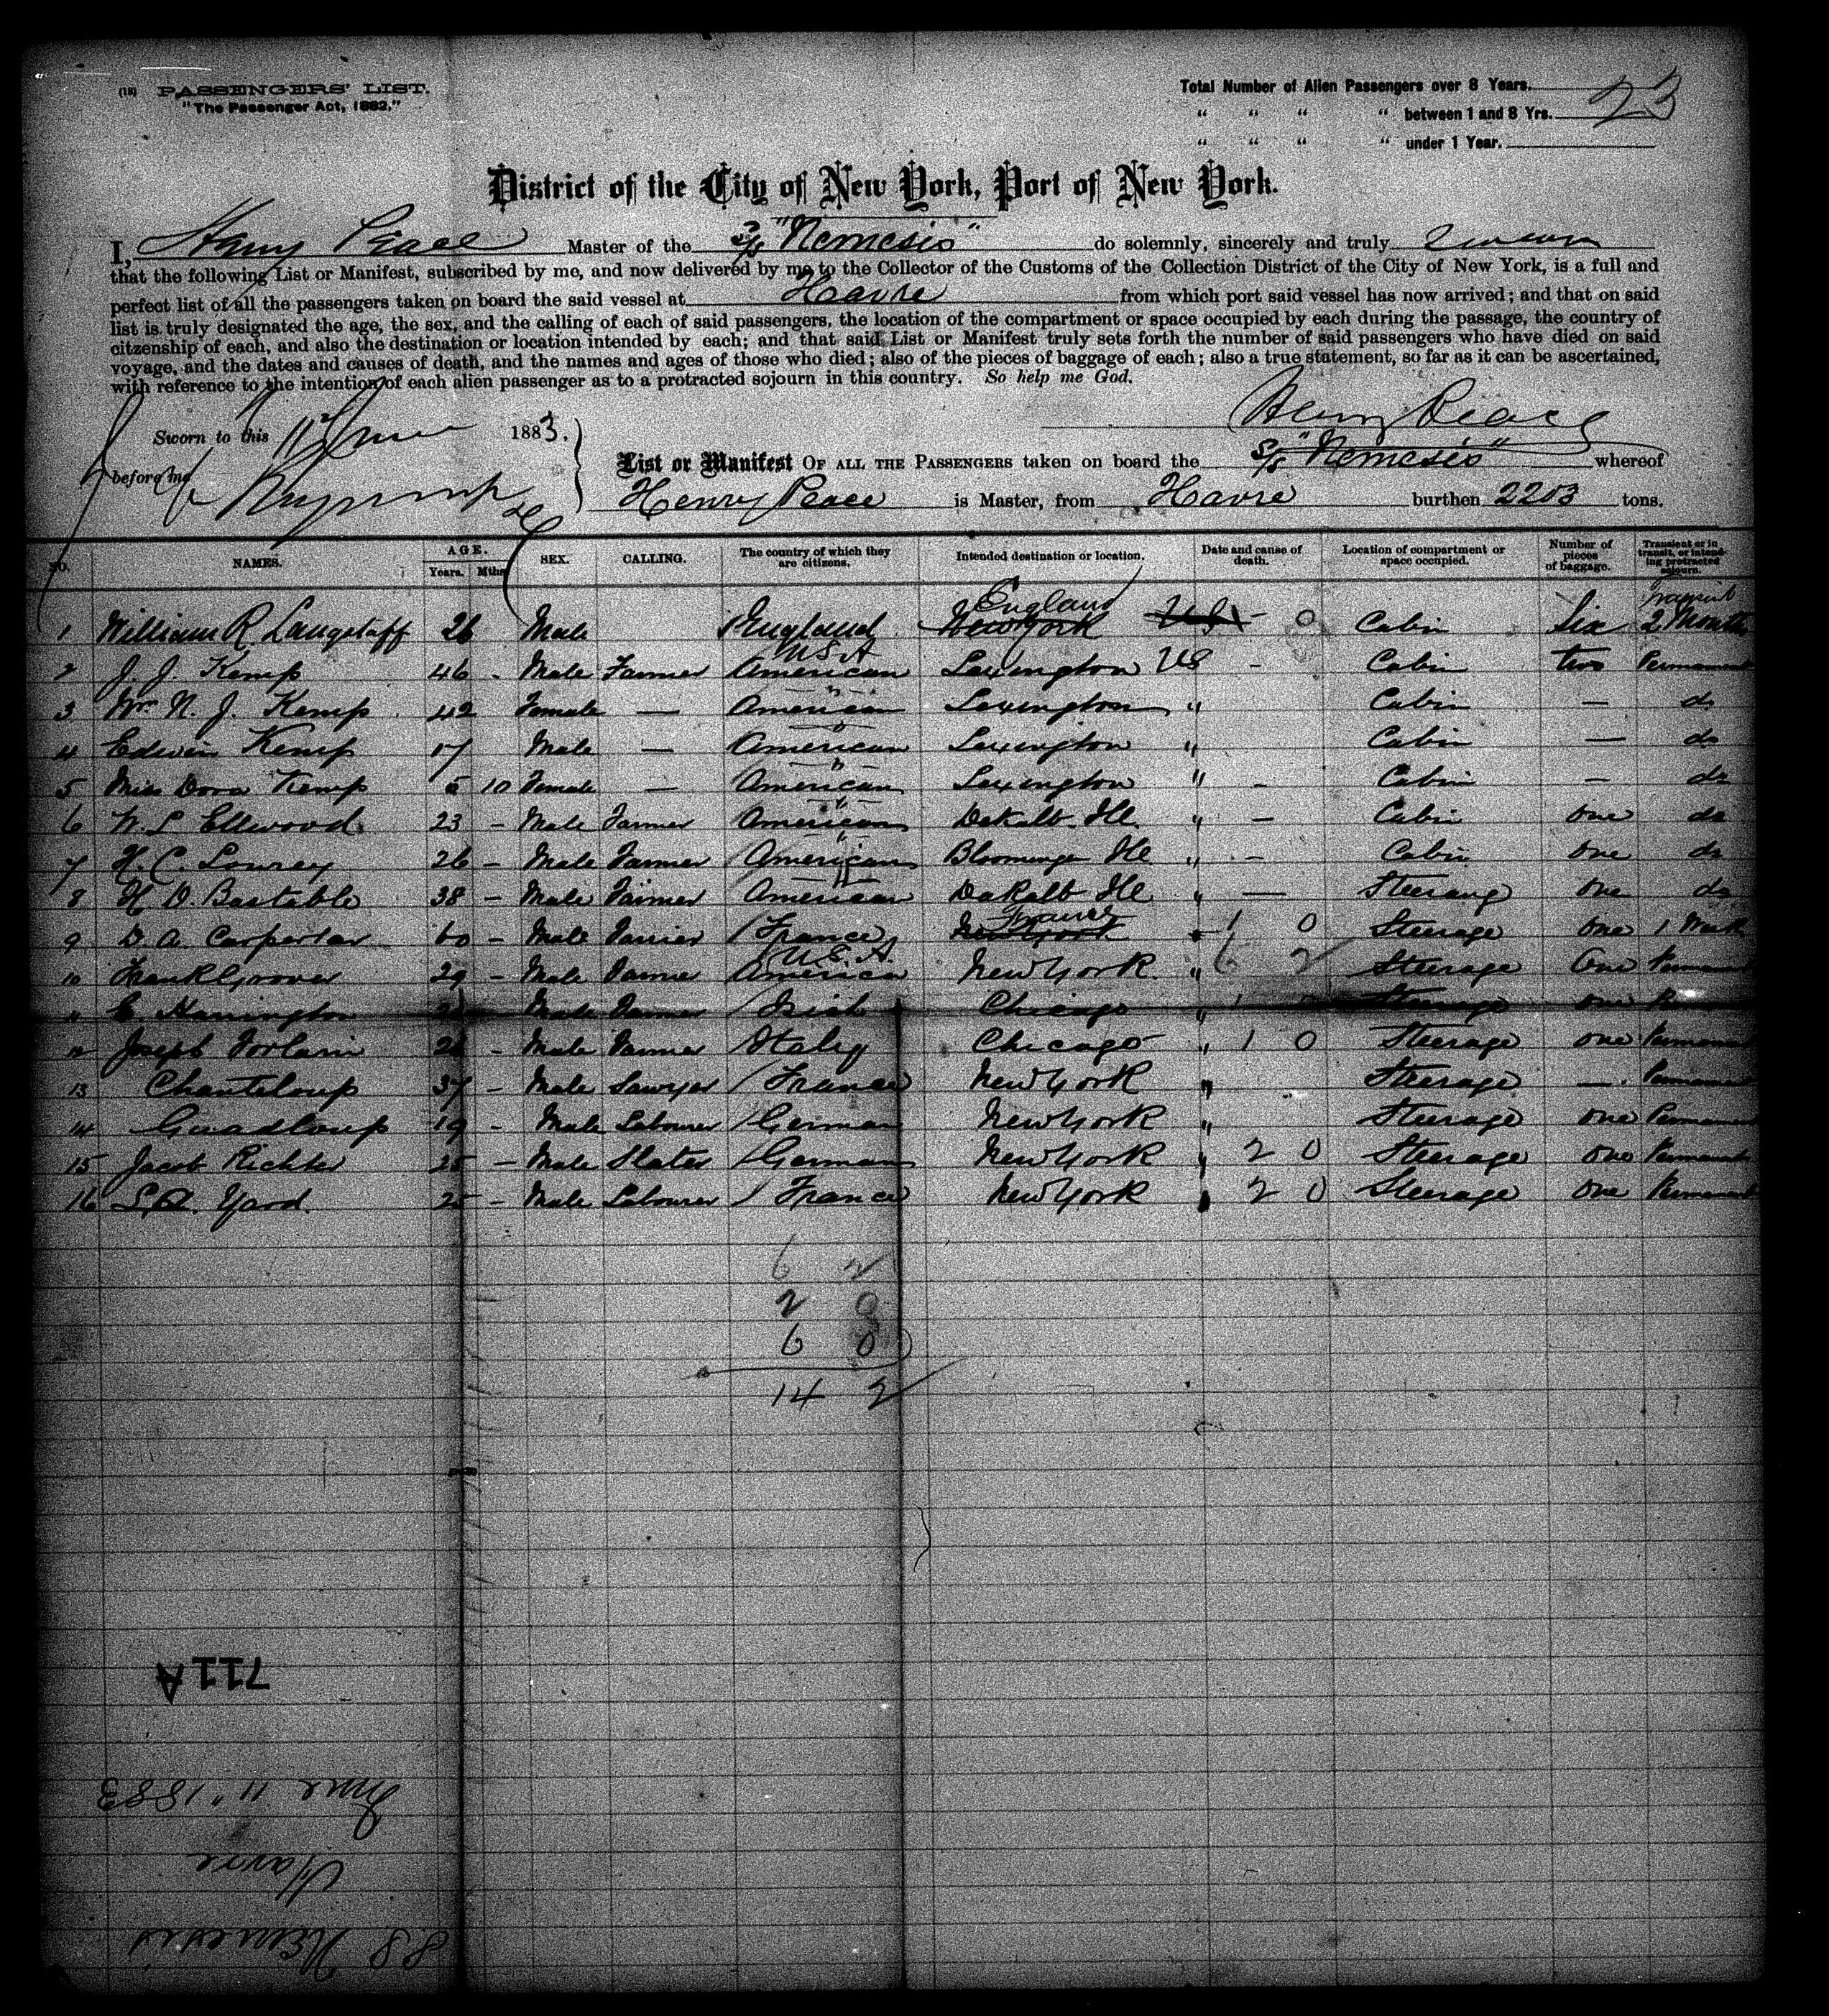 (18) PASSENGERS' LIST.
"The Passenger Act, 1882."
Total Number of Alien Passengers over 8 Years. 23
" " " " between 1 and 8 Yrs.
" " " " under 1 Year.
District of the City of New York, Port of New York.
I, Henry Peace Master of the S/S "Nemesis" do solemnly, sincerely and truly swear
that the following List or Manifest, subscribed by me, and now delivered by me to the Collector of the Customs of the Collection District of the City of New York, is a full and
perfect list of all the passengers taken on board the said vessel at Havre from which port said vessel has now arrived; and that on said
list is truly designated the age, the sex, and the calling of each of said passengers, the location of the compartment or space occupied by each during the passage, the country of
citzenship of each, and also the destination or location intended by each; and that said List or Manifest truly sets forth the number of said passengers who have died on said
voyage, and the dates and causes of death, and the names and ages of those who died; also of the pieces of baggage of each; also a true statement, so far as it can be ascertained,
with reference to the intention of each alien passenger as to a protracted sojourn in this country. So help me God.
Henry Peace
Sworn to this 11 June 1883.
before me
List or Manifest OF ALL THE PASSENGERS taken on board the S/S "Nemesis" whereof
Henry Peace is Master, from Havre burthen 2203 tons.
NO. NAMES. AGE. Years. Mths. SEX. CALLING. The country of which they are citizens. Intended destination or location. Date and cause of death. Location of compartment or space occupied. Number of pieces of baggage. Transient or in transit, or intending protracted sojourn.
1 William R Langstaff 26 Male England New York England U.S. - 0 Cabin Six Transient 2 Month
2 J. J. Kemp 46 - Male Farmer American U.S.A Lexington US - Cabin two Permanent
3 Mrs N. J. Kemp 42 Female — American " Lexington " Cabin — do
4 Edwin Kemp 17 Male — American " Lexington " Cabin — do
5 Miss Dora Kemp 5 10 Female — American " Lexington " - Cabin — do
6 W. L Ellwood 23 - Male Farmer American " DeKalb Ill. " — Cabin one do
7 H. C. Lowrey 26 - Male Farmer American " Ill " - Cabin one do
8 H. D. Bastable 38 - Male Farmer American " DeKalb Ill " — one do
9 D. A. 60 - Male / France New York France 1 0 Steerage one 1 Week
10 Frank Grover 29 - Male Farmer America U.S.A. New York " 6 2 Steerage One Permanent
11 E. Harrington Male Farmer / Irish Chicago " Steerage one
12 Joseph 26 - Male Farmer / Italy Chicago " 1 0 Steerage one Permanent
13 Chanteloup 37 - Male Sawyer / France New York " Steerage —. Permanent
14 Guadloup 19 - Male Labourer / German New York " Steerage one Permanent
15 Jacob Richter 25 - Male Slater / German New York " 2 0 Steerage one Permanent
16 Yard. 25 - Male Labourer / France New York " 2 0 Steerage one Permanent
6 2
2 0
6 0
14 2
711A
June 11" 1883
Havre
SS Nemesis